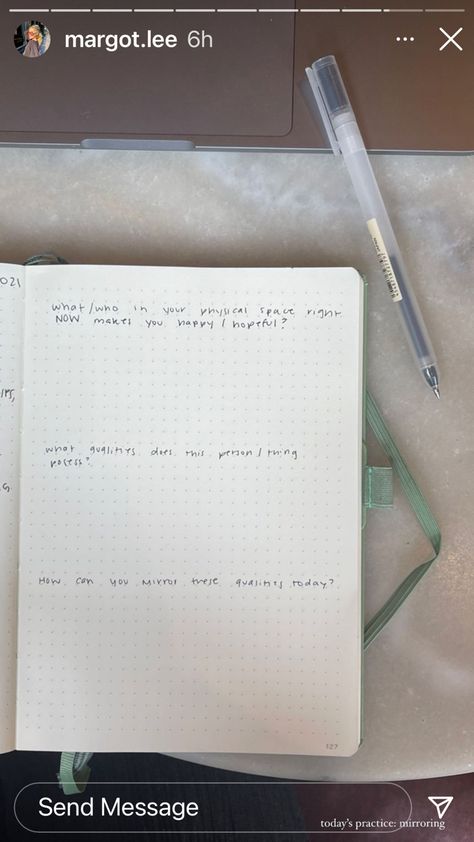 margot.lee 6h
021
what/who in your physical space right
NOW makes you happy / hopeful?
what qualities does this person / thing
posess?
HOW can you mirror these qualities today?
127
Send Message
today's practice: mirroring